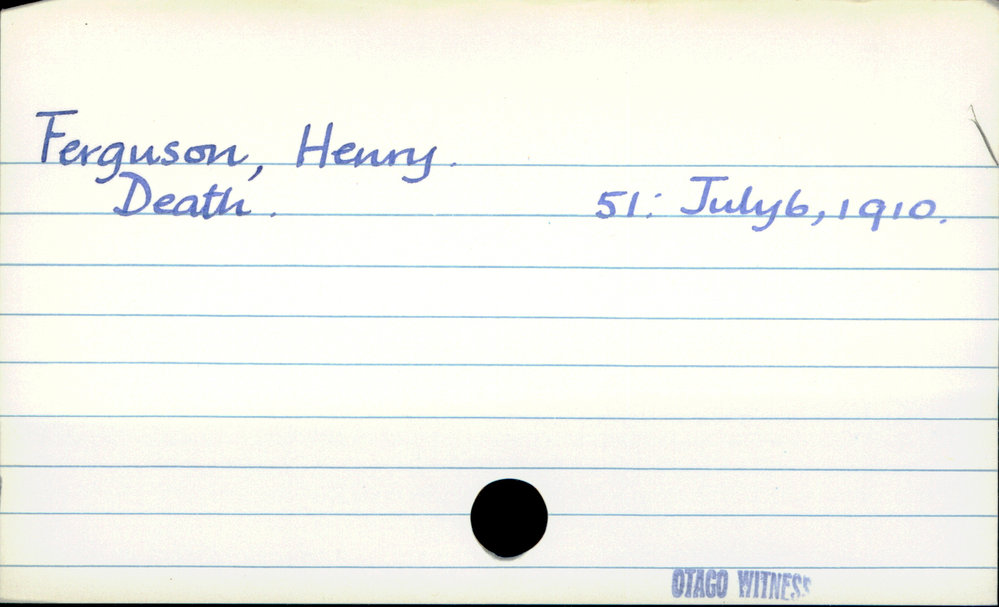 Ferguson, Henry.
Death. 51: July 6, 1910.
OTAGO WITNESS